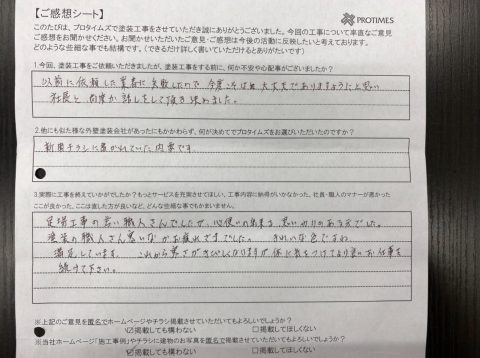 【ご感想シート】
PROTIMES
このたびは、プロタイムズで塗装工事をさせていただき誠にありがとうございました。今回の工事について率直なご意見
ご感想をお聞かせください。お聞かせいただいたご意見・ご感想は今後の活動に反映したいと考えております。
どのような些細な事でも結構です。(できるだけ詳しく書いていただけるとありがたいです)
1.今回、塗装工事をご依頼いただきましたが、塗装工事をする前に、何か不安や心配事がございましたか?
以前に依頼した業者に失敗したので今度こそは大丈夫でありますようにと思い
社長と何度か話しをして頂き決めました。
2.他にも似た様な外壁塗装会社があったにもかかわらず、何が決めてでプロタイムズをお選びいただいたのですか?
新聞チラシに書かれていた内容です。
3.実際に工事を終えていかがでしたか?もっとサービスを充実させてほしい、工事内容に納得がいかなかった、社長・職人のマナーが悪かった
ここが良かった、ここは直した方が良いなど、どんな些細な事でもかまいません。
足場工事の若い職人さんでしたが、心使いの出来る思いやりのある方でした。
塗装の職人さん寒いなかお疲れさまでした。 きれいな色ですね
満足しています。 これから寒さがきびしくなりますが体に気をつけてより良いお仕事を
続けて下さい。
※上記のご意見を匿名でホームページやチラシ掲載させていただいてもよろしいでしょうか?
☑掲載しても構わない □掲載してほしくない
※当社ホームページ「施工事例」やチラシに建物のお写真を匿名で掲載させていただいてもよろしいでしょうか?
☑掲載しても構わない □掲載してほしくない